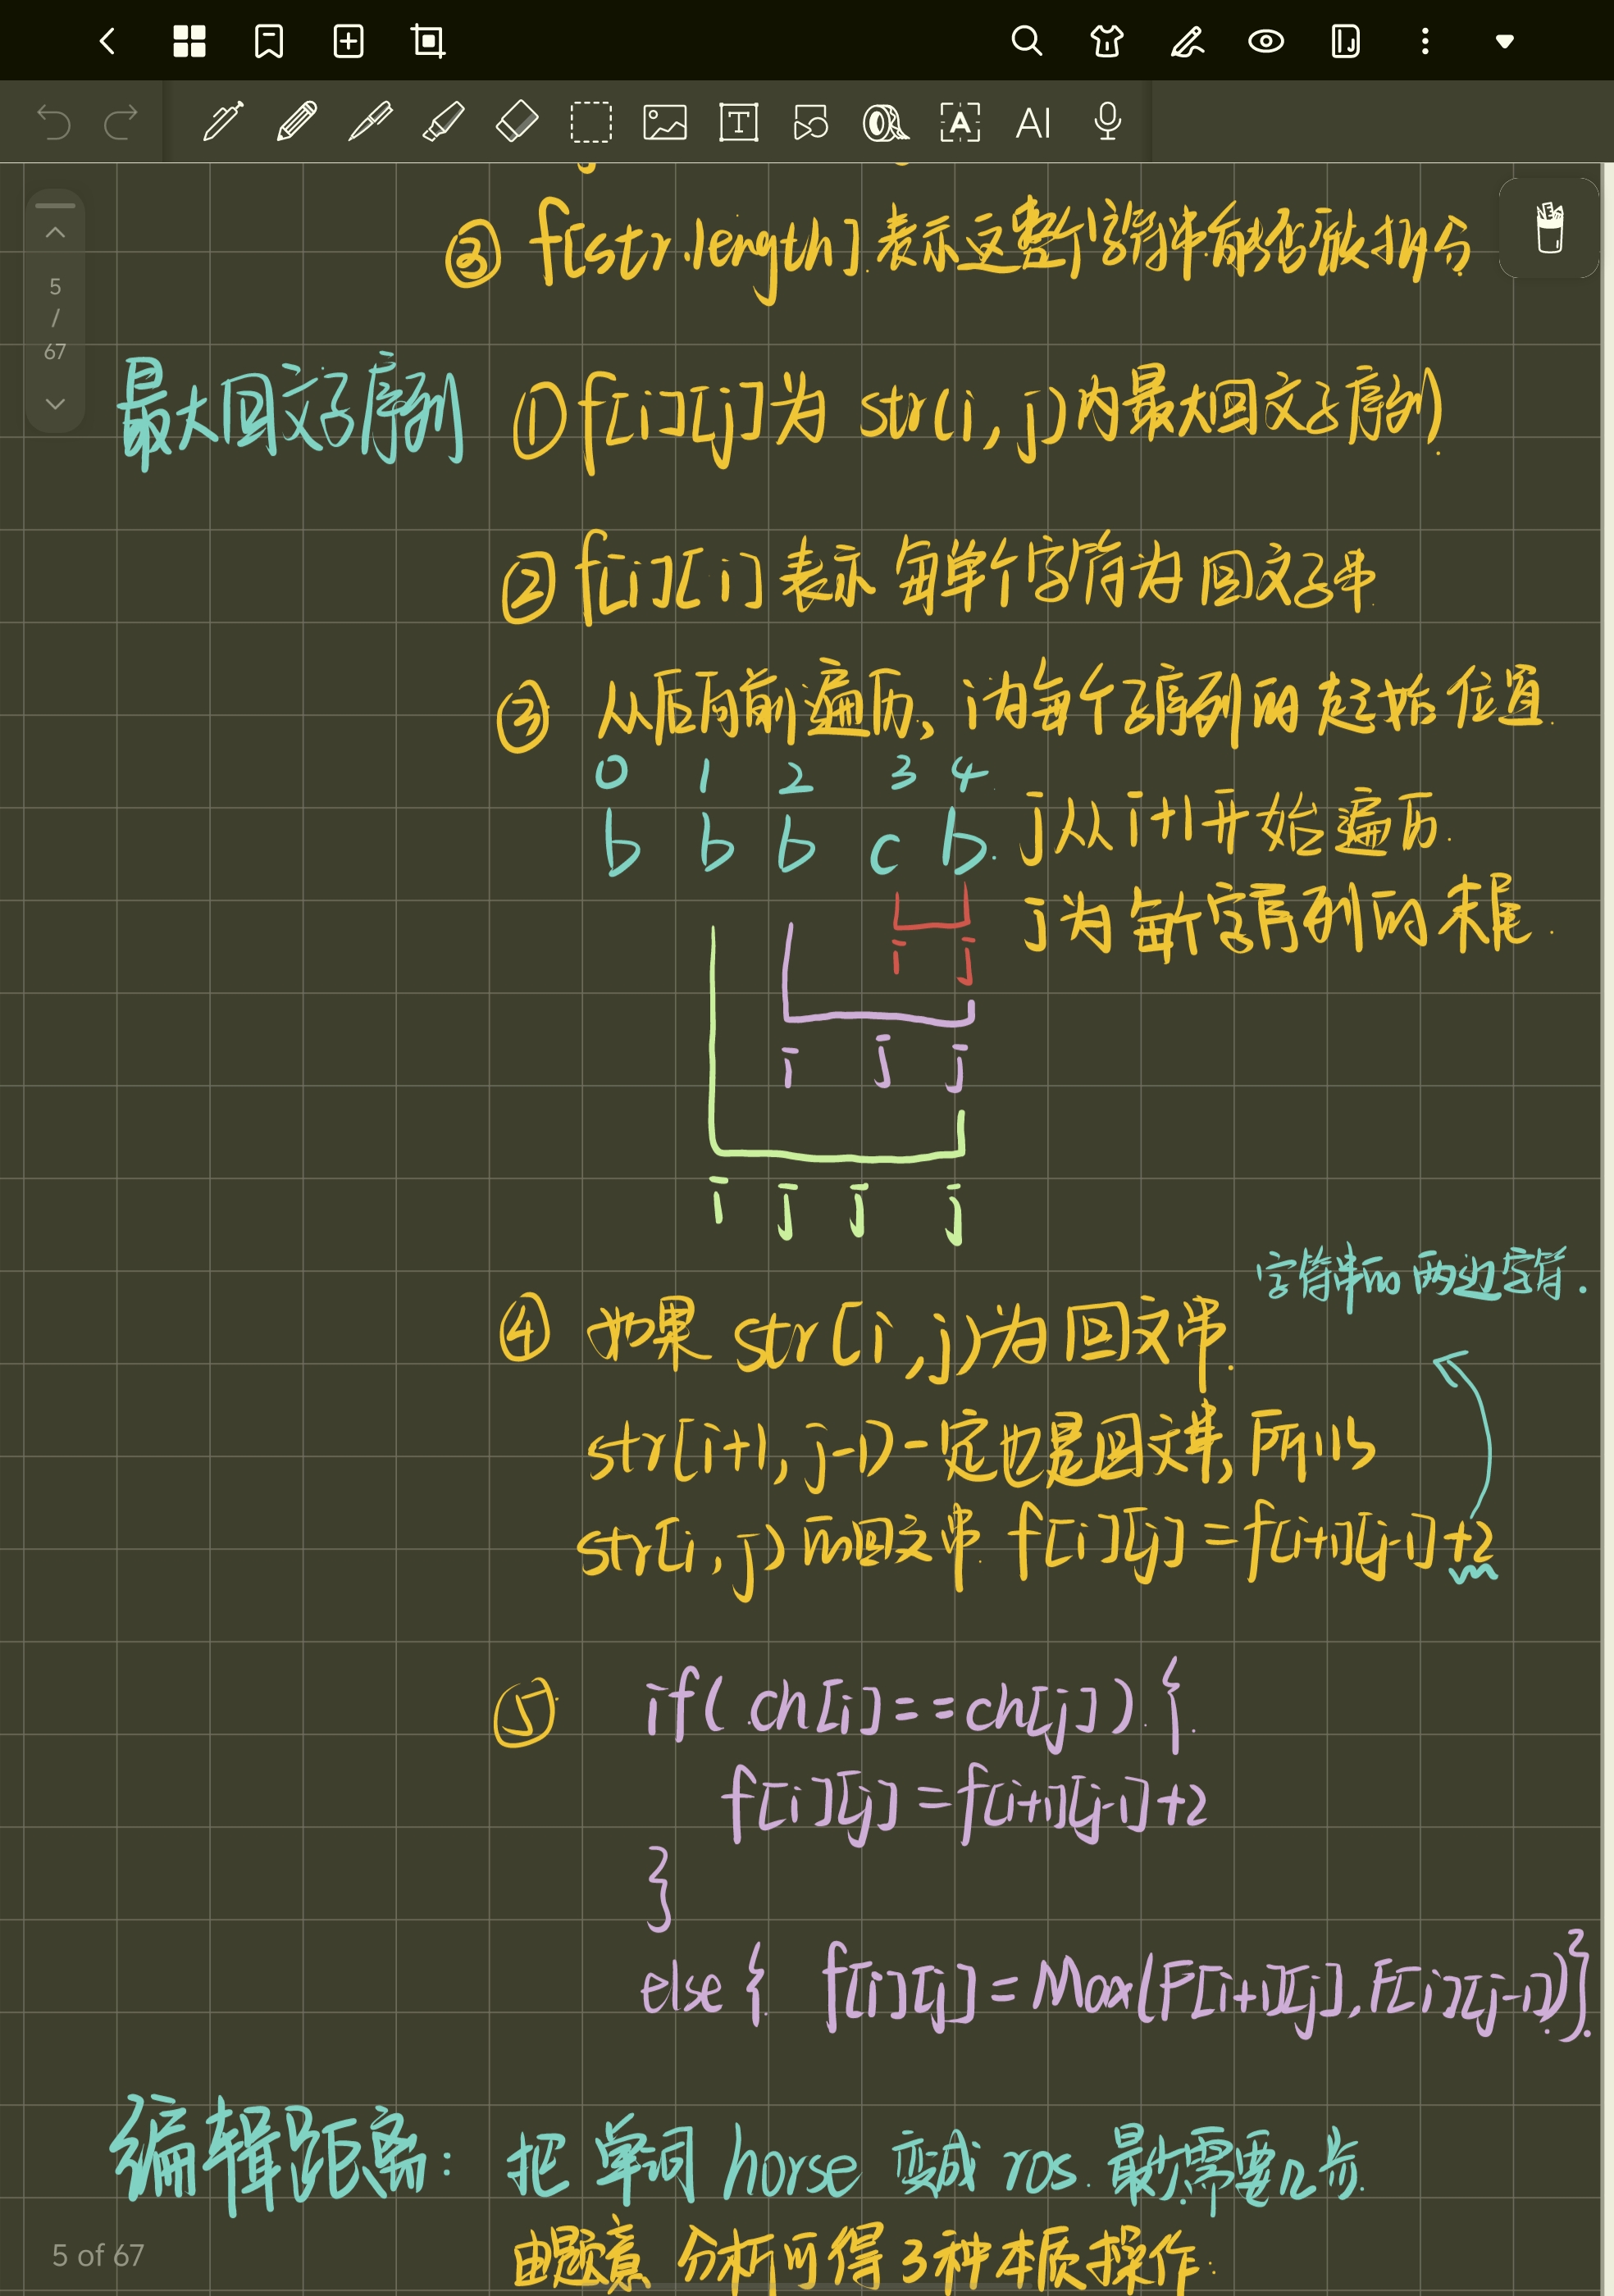 5
/
67
③ f[str.length]表示这整个字符串能否被拆分
最大回文子序列 ①f[i][j]为 str(i,j)内最大回文子序列
②f[i][i]表示每单个字符为回文子串
③ 从后向前遍历, i为每个子序列的起始位置.
0 1 2 3 4
b b b c b. j从i+1开始遍历.
j为每个字序列的末尾.
i j
i j j
i j j j
字符串的两边字符.
④ 如果 str[i,j)为回文串.
str[i+1, j-1)一定也是回文串, 所以
str[i,j)的回文串 f[i][j]=f[i+1][j-1]+2
⑤ if( ch[i]==ch[j]) {
f[i][j]=f[i+1][j-1]+2
}
else { f[i][j]=Max(F[i+1][j], F[i][j-1])}
编辑距离: 把 单词 horse 变成 ros. 最少需要几步.
由题意 分析可得 3种本质操作:
5 of 67
T
A
AI